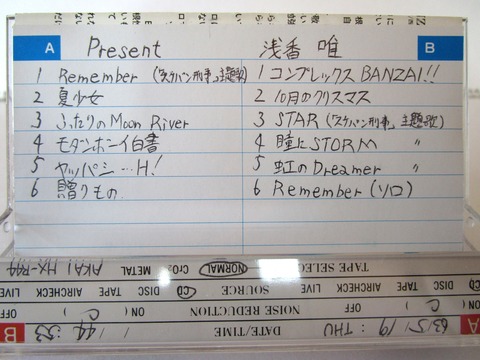 A Present 浅香 唯 B
1 Remember (「スケバン刑事」主題歌)
2 夏少女
3 ふたりのMoon River
4 モダンボーイ白書
5 ヤッパシ…H!
6 贈りもの
1 コンプレックス BANZAI!!
2 10月のクリスマス
3 STAR (「スケバン刑事」主題歌)
4 瞳にSTORM 〃
5 虹のDreamer 〃
6 Remember (ソロ)
TAPE SELECT NORMAL CrO2 METAL AKAI HX-R44
SOURCE CD DISC TAPE AIRCHECK LIVE CD DISC TAPE AIRCHECK LIVE
NOISE REDUCTION ON ( C ) OFF ON ( C ) OFF
A DATE/TIME 63/5/19 : THU 44:53 B